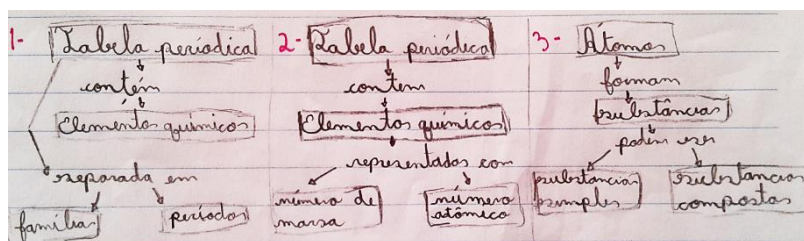 1- Tabela periódica
contém
Elementos químicos
separada em
família
períodos
2- Tabela periódica
contem
Elementos químicos
representados com
número de
massa
número
atômico
3- Átomos
formam
substâncias
podem ser
substâncias
simples
substancias
compostas